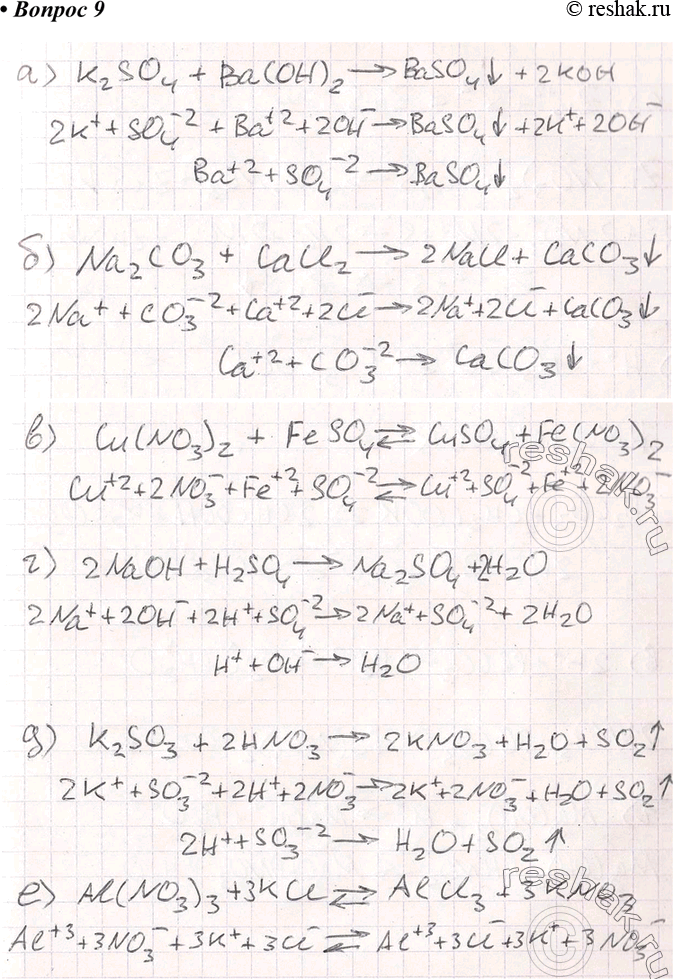 • Вопрос 9
© reshak.ru
а) K₂SO₄ + Ba(OH)₂ → BaSO₄↓ + 2KOH
2K⁺ + SO₄⁻² + Ba⁺² + 2OH⁻ → BaSO₄↓ + 2K⁺ + 2OH⁻
Ba⁺² + SO₄⁻² → BaSO₄↓
б) Na₂CO₃ + CaCl₂ → 2NaCl + CaCO₃↓
2Na⁺ + CO₃⁻² + Ca⁺² + 2Cl⁻ → 2Na⁺ + 2Cl⁻ + CaCO₃↓
Ca⁺² + CO₃⁻² → CaCO₃↓
в) Cu(NO₃)₂ + FeSO₄ ⇄ CuSO₄ + Fe(NO₃)₂
Cu⁺² + 2NO₃⁻ + Fe⁺² + SO₄⁻² ⇄ Cu⁺² + SO₄⁻² + Fe⁺² + 2NO₃⁻
г) 2NaOH + H₂SO₄ → Na₂SO₄ + 2H₂O
2Na⁺ + 2OH⁻ + 2H⁺ + SO₄⁻² → 2Na⁺ + SO₄⁻² + 2H₂O
H⁺ + OH⁻ → H₂O
д) K₂SO₃ + 2HNO₃ → 2KNO₃ + H₂O + SO₂↑
2K⁺ + SO₃⁻² + 2H⁺ + 2NO₃⁻ → 2K⁺ + 2NO₃⁻ + H₂O + SO₂↑
2H⁺ + SO₃⁻² → H₂O + SO₂↑
е) Al(NO₃)₃ + 3KCl ⇄ AlCl₃ + 3KNO₃
Al⁺³ + 3NO₃⁻ + 3K⁺ + 3Cl⁻ ⇄ Al⁺³ + 3Cl⁻ + 3K⁺ + 3NO₃⁻
reshak.ru
©
reshak.ru
©